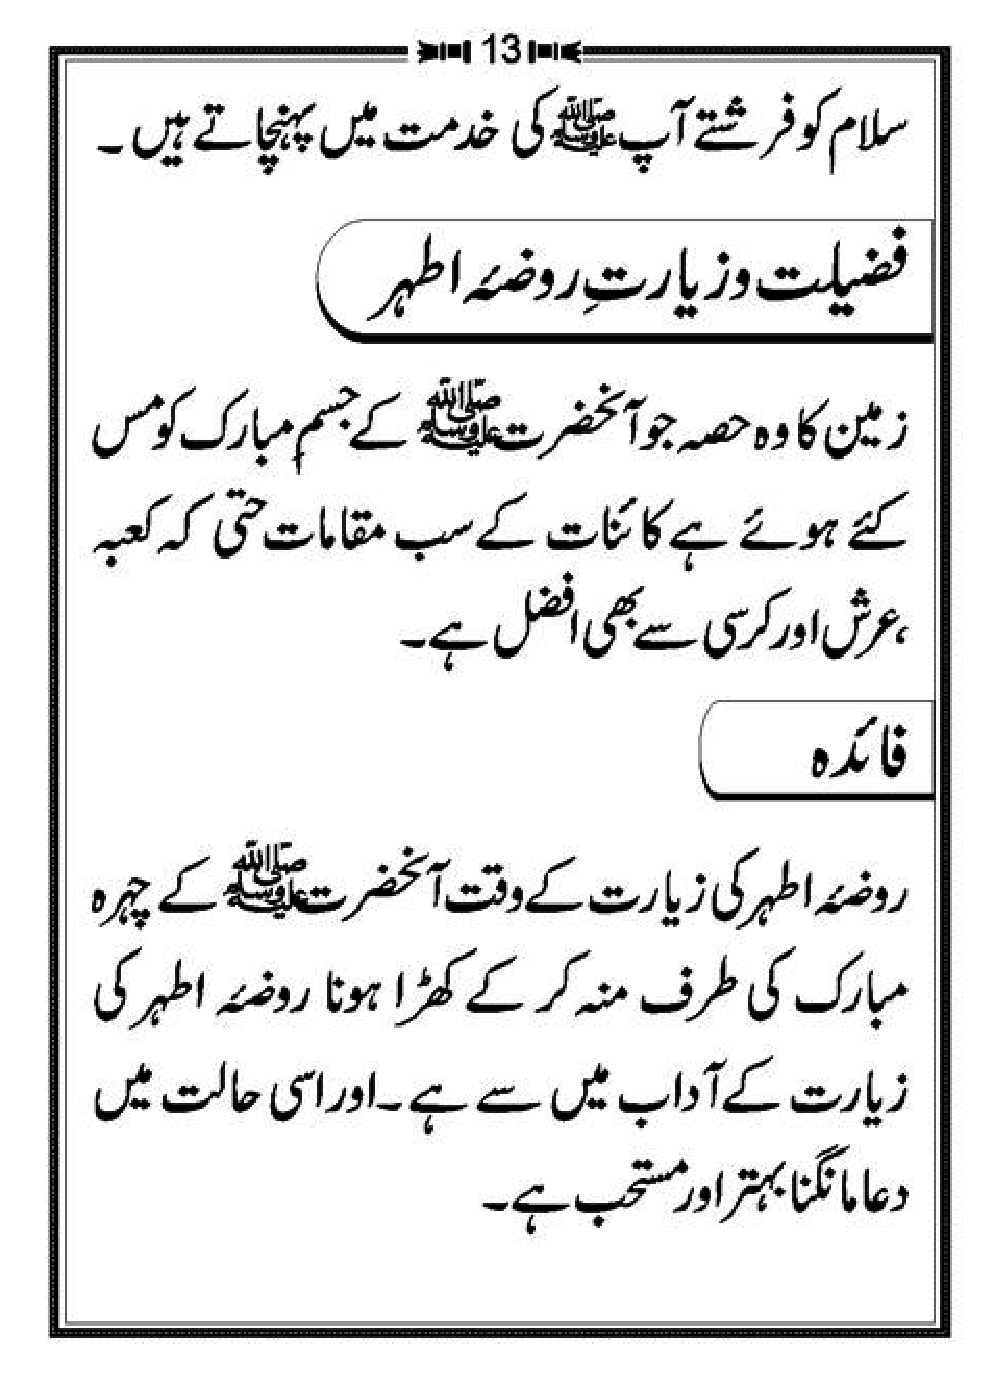 13
سلام کو فرشتے آپ ﷺ کی خدمت میں پہنچاتے ہیں۔
فضیلت و زیارتِ روضۂ اطہر
زمین کا وہ حصہ جو آنحضرت ﷺ کے جسمِ مبارک کو مس
کئے ہوئے ہے کائنات کے سب مقامات حتی کہ کعبہ
،عرش اور کرسی سے بھی افضل ہے۔
فائدہ
روضۂ اطہر کی زیارت کے وقت آنحضرت ﷺ کے چہرہ
مبارک کی طرف منہ کر کے کھڑا ہونا روضۂ اطہر کی
زیارت کے آداب میں سے ہے۔ اور اسی حالت میں
دعا مانگنا بہتر اور مستحب ہے۔